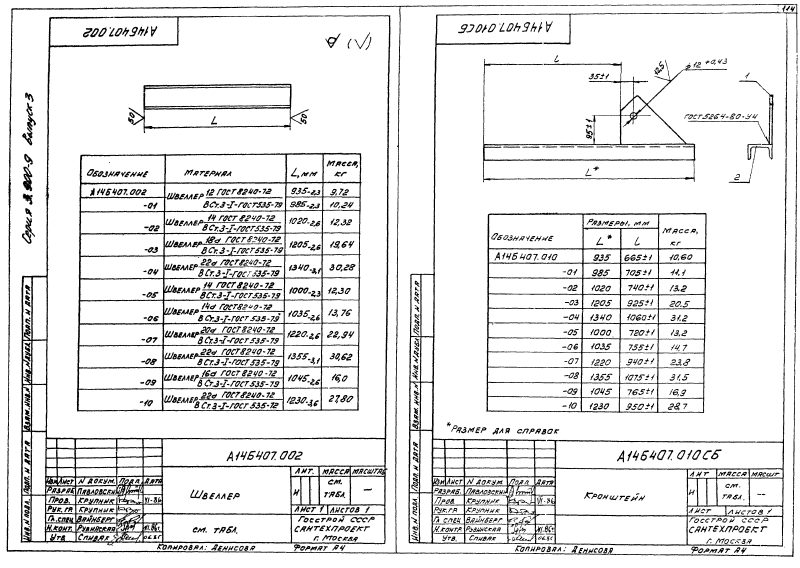 114
А14Б407.002
Серия 3.900-9 выпуск 3
(√)
50
50
L
Обозначение Материал L, мм Масса, кг
А14Б407.002 Швеллер 12 ГОСТ 8240-72 935-2,3 9,72
-01 В Ст.3-I-ГОСТ 535-79 985-2,3 10,24
-02 Швеллер 14 ГОСТ 8240-72 В Ст.3-I-ГОСТ 535-79 1020-2,6 12,32
-03 Швеллер 18а ГОСТ 8240-72 В Ст.3-I-ГОСТ 535-79 1205-2,6 19,64
-04 Швеллер 22а ГОСТ 8240-72 В Ст.3-I-ГОСТ 535-79 1340-3,1 30,28
-05 Швеллер 14 ГОСТ 8240-72 В Ст.3-I-ГОСТ 535-79 1000-2,3 12,30
-06 Швеллер 14а ГОСТ 8240-72 В Ст.3-I-ГОСТ 535-79 1035-2,6 13,76
-07 Швеллер 20а ГОСТ 8240-72 В Ст.3-I-ГОСТ 535-79 1220-2,6 22,94
-08 Швеллер 22а ГОСТ 8240-72 В Ст.3-I-ГОСТ 535-79 1355-3,1 30,62
-09 Швеллер 16а ГОСТ 8240-72 В Ст.3-I-ГОСТ 535-79 1045-2,6 16,0
-10 Швеллер 22а ГОСТ 8240-72 В Ст.3-I-ГОСТ 535-72 1230-3,6 27,80
Инв.№ подл. Подп. и дата Взам. инв.№ Инв.№ дубл. Подп. и дата
А14Б407.002
Изм Лист N докум. Подп. Дата
Разраб. Павловский
Пров. Крупник VI-86
Рук.гр. Крупник
Гл.спец. Вайнберг
Н.контр. Рувинская
Утв. Спивак
Швеллер
см. табл.
Лит. Масса Масштаб
И см. табл. —
Лист 1 Листов 1
Госстрой СССР
Сантехпроект
г. Москва
Копировал: Денисова Формат А4
А14Б407.010СБ
L
35±1
12,5
⌀12 +0,43
1
95±1
ГОСТ 5264-80-У4
2
L*
Обозначение Размеры, мм L* L Масса, кг
А14Б407.010 935 665±1 10,60
-01 985 705±1 11,1
-02 1020 740±1 13,2
-03 1205 925±1 20,5
-04 1340 1060±1 31,2
-05 1000 720±1 13,2
-06 1035 755±1 14,7
-07 1220 940±1 23,8
-08 1355 1075±1 31,5
-09 1045 765±1 16,9
-10 1230 950±1 28,7
*Размер для справок
Инв.№ подл. Подп. и дата Взам. инв.№ Инв.№ дубл. Подп. и дата
А14Б407.010СБ
Изм Лист N докум. Подп. Дата
Разраб. Павловский
Пров. Крупник VI-86
Рук.гр. Крупник
Гл.спец. Вайнберг
Н.контр. Рувинская
Утв. Спивак
Кронштейн
Лит Масса Масшт
И см. табл. —
Лист Листов 1
Госстрой СССР
Сантехпроект
г. Москва
Копировал: Денисова Формат А4